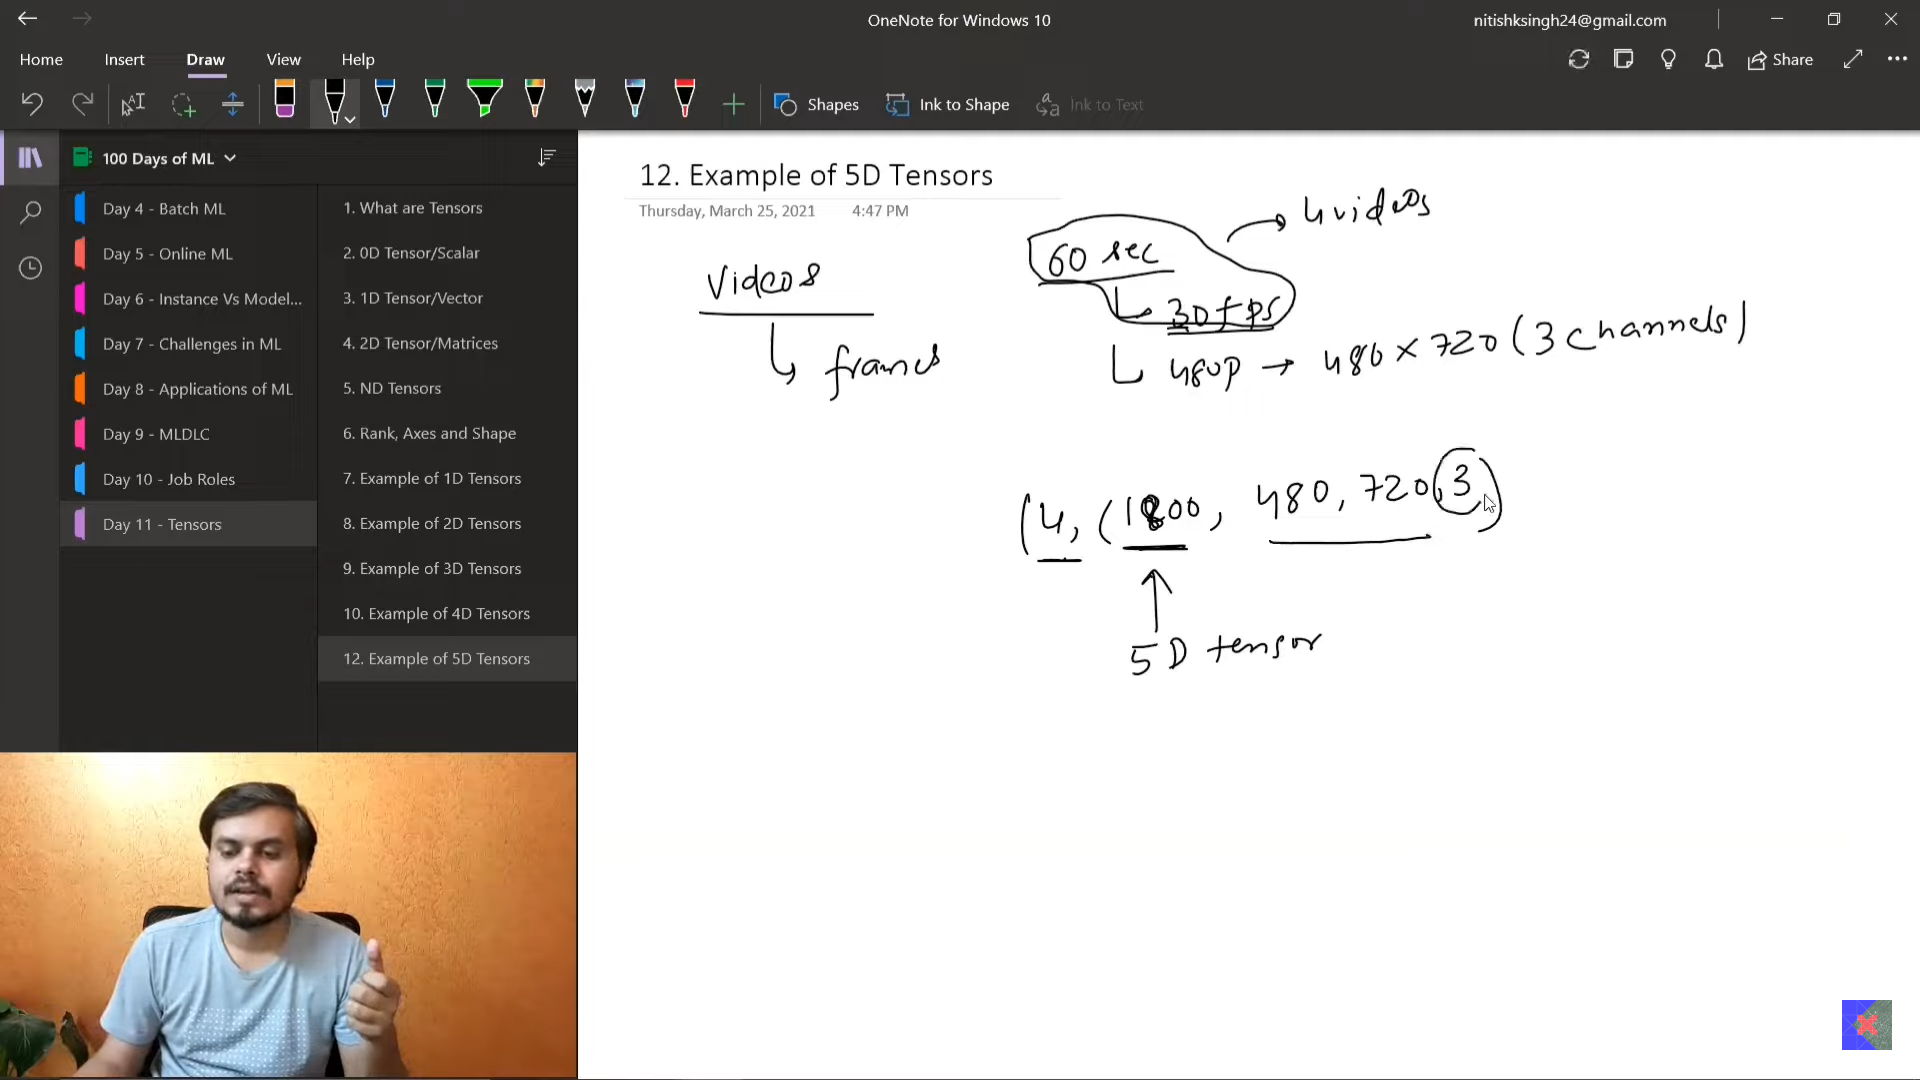 OneNote for Windows 10
nitishksingh24@gmail.com
Home Insert Draw View Help
Share
Shapes Ink to Shape Ink to Text
100 Days of ML
Day 4 - Batch ML
Day 5 - Online ML
Day 6 - Instance Vs Model...
Day 7 - Challenges in ML
Day 8 - Applications of ML
Day 9 - MLDLC
Day 10 - Job Roles
Day 11 - Tensors
1. What are Tensors
2. 0D Tensor/Scalar
3. 1D Tensor/Vector
4. 2D Tensor/Matrices
5. ND Tensors
6. Rank, Axes and Shape
7. Example of 1D Tensors
8. Example of 2D Tensors
9. Example of 3D Tensors
10. Example of 4D Tensors
12. Example of 5D Tensors
12. Example of 5D Tensors
Thursday, March 25, 2021 4:47 PM
4 videos
60 sec
Videos
30 fps
frames
480p → 480 × 720 (3 channels)
(4, (1800, 480, 720, 3)
5D tensor